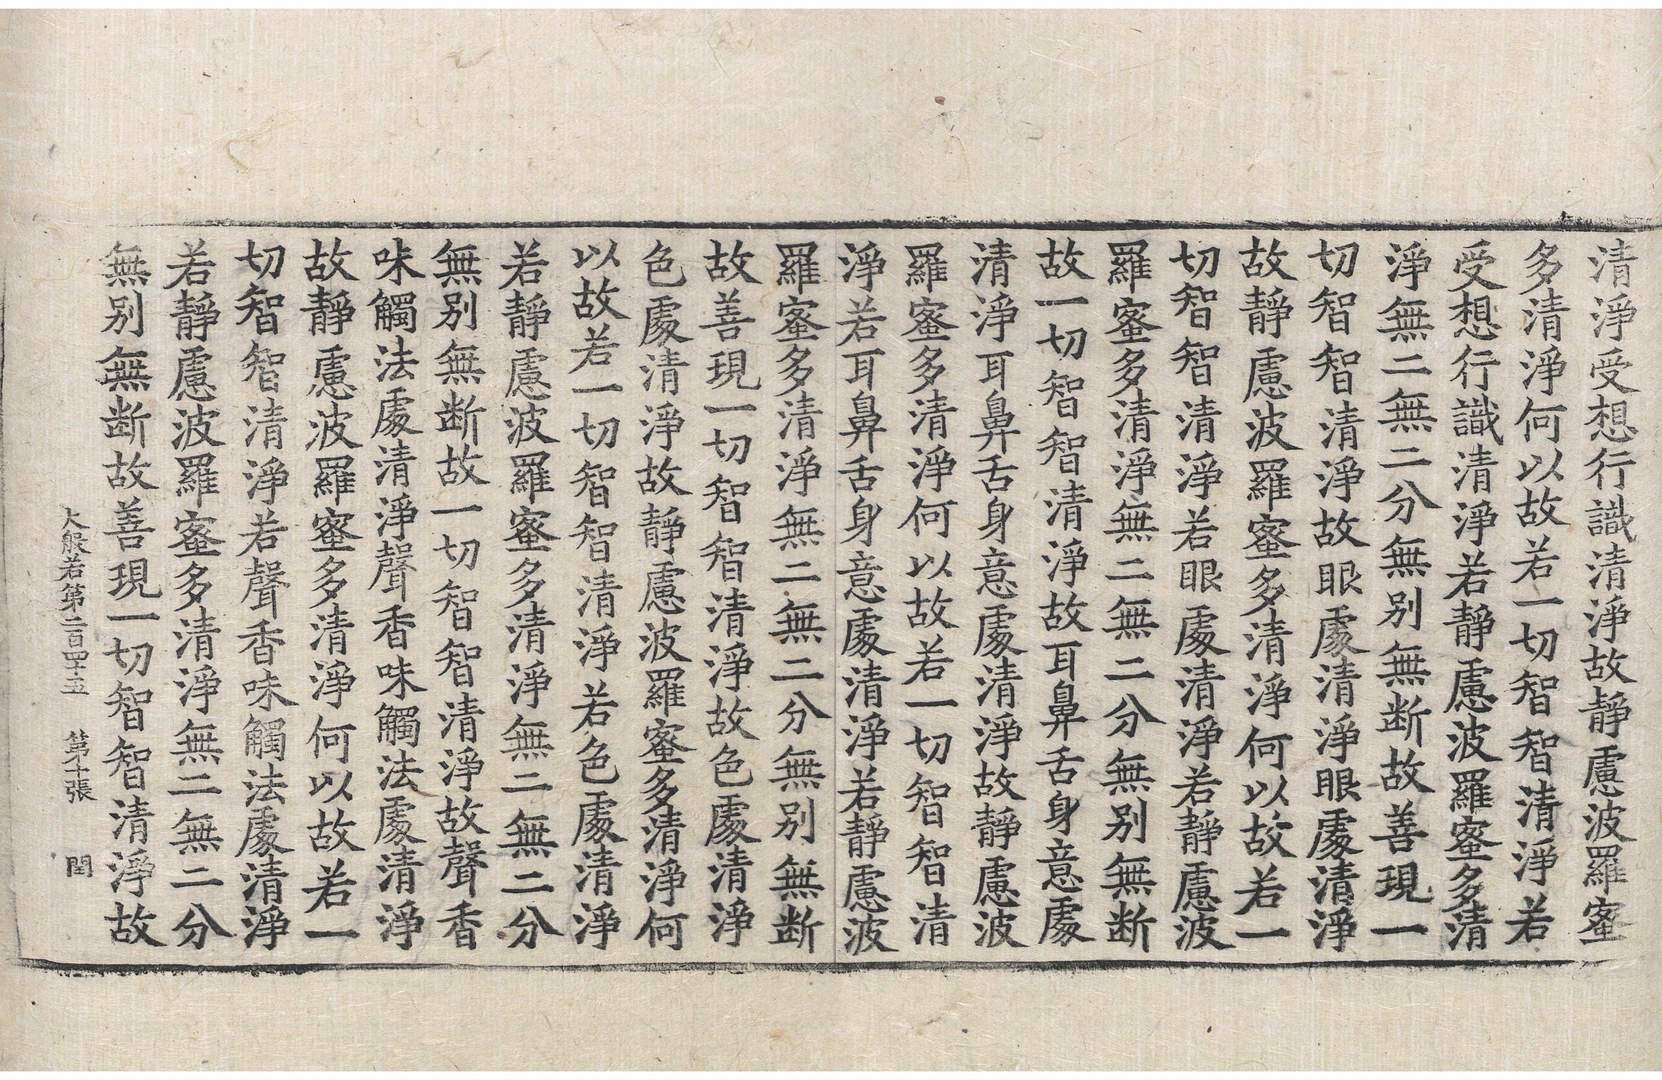 清淨受想行識清淨故靜慮波羅蜜
多清淨何以故若一切智智清淨若
受想行識清淨若靜慮波羅蜜多清
淨無二無二分無別無断故善現一
切智智清淨故眼處清淨眼處清淨
故靜慮波羅蜜多清淨何以故若一
切智智清淨若眼處清淨若靜慮波
羅蜜多清淨無二無二分無別無断
故一切智智清淨故耳鼻舌身意處
清淨耳鼻舌身意處清淨故靜慮波
羅蜜多清淨何以故若一切智智清
淨若耳鼻舌身意處清淨若靜慮波
羅蜜多清淨無二無二分無別無断
故善現一切智智清淨故色處清淨
色處清淨故靜慮波羅蜜多清淨何
以故若一切智智清淨若色處清淨
若靜慮波羅蜜多清淨無二無二分
無別無断故一切智智清淨故聲香
味觸法處清淨聲香味觸法處清淨
故靜慮波羅蜜多清淨何以故若一
切智智清淨若聲香味觸法處清淨
若靜慮波羅蜜多清淨無二無二分
無別無断故善現一切智智清淨故
大般若第二百四十五 第十張 閏